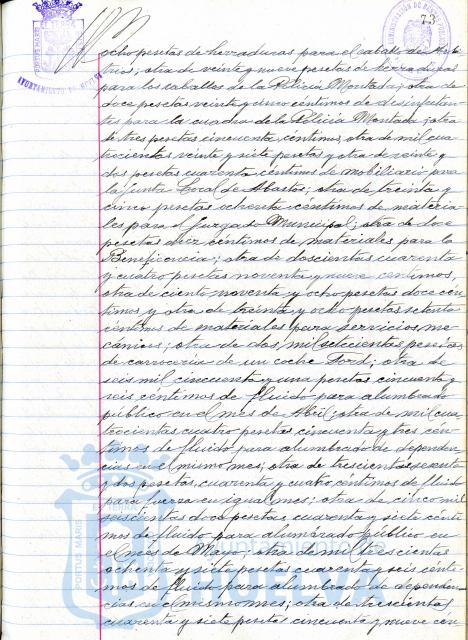 73
AYUNTAMIENTO DE HUELVA
ocho pesetas de herraduras para el caballo de
otra de veinte y nueve pesetas de herraduras
para los caballos de la Policía Montada; otra de
doce pesetas veinte y cinco céntimos de desinfectan-
tes para la cuadra de la Policía Montada; otra
de tres pesetas cincuenta céntimos, otra de mil cua
trocientas veinte y siete pesetas y otra de veinte y
dos pesetas cuarenta céntimos de mobiliario para
la Junta Local de Abastos; otra de treinta y
cinco pesetas ochenta céntimos de materia-
les para el Juzgado Municipal; otra de doce
pesetas diez céntimos de materiales para la
Beneficencia; otra de doscientas cuarenta
y cuatro pesetas noventa y nueve céntimos,
otra de ciento noventa y ocho pesetas doce cén
timos y otra de treinta y ocho pesetas setenta
céntimos de materiales para servicios me
cánicos; otra de dos mil setecientas pesetas
de carrocería de un coche Ford; otra de
seis mil cincuenta y una pesetas cincuenta y
seis céntimos de fluido para alumbrado
público en el mes de Abril; otra de mil cua
trocientas cuatro pesetas cincuenta y tres cén
timos de fluido para alumbrado de dependen-
cias en el mismo mes; otra de trescientas sesenta
y dos pesetas, cuarenta y cuatro céntimos de fluido
para fuerza en igual mes; otra de cinco mil
seiscientas doce pesetas cuarenta y siete cénti
mos de fluido para alumbrado público en
el mes de Mayo; otra de mil trescientas
ochenta y siete pesetas cuarenta y seis cénti
mos de fluido para alumbrado de dependen-
cias en el mismo mes; otra de trescientas
cuarenta y siete pesetas cincuenta y nueve cén
PORTUS MARIS